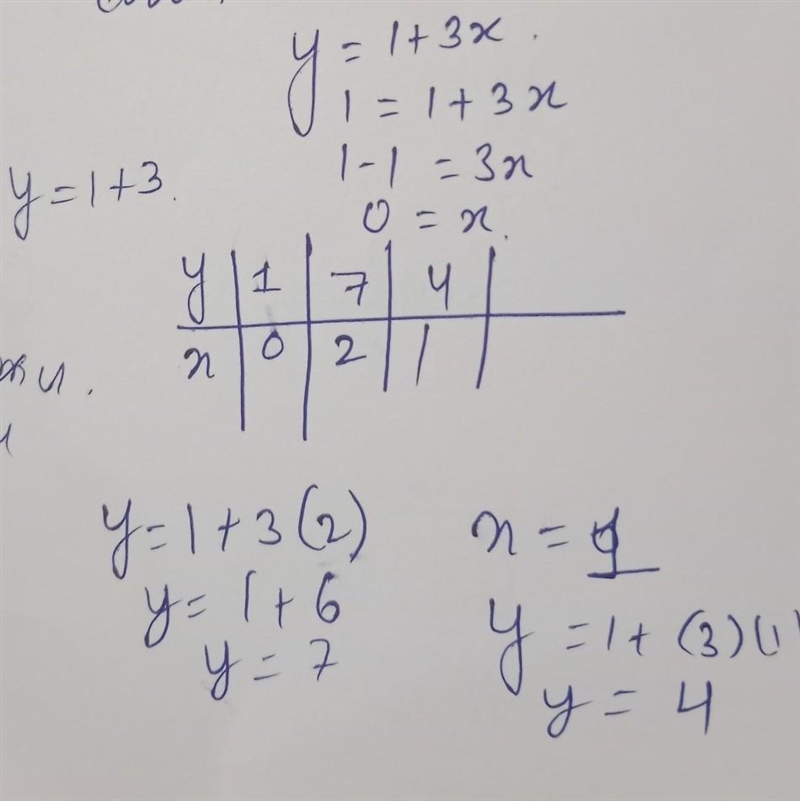 y = 1 + 3x.
1 = 1 + 3x
1 - 1 = 3x
y = 1 + 3.
0 = x.
y | 1 | 7 | 4 |
x | 0 | 2 | 1 |
y = 1 + 3(2)
y = 1 + 6
y = 7
x =
y = 1 + (3)(1)
y = 4